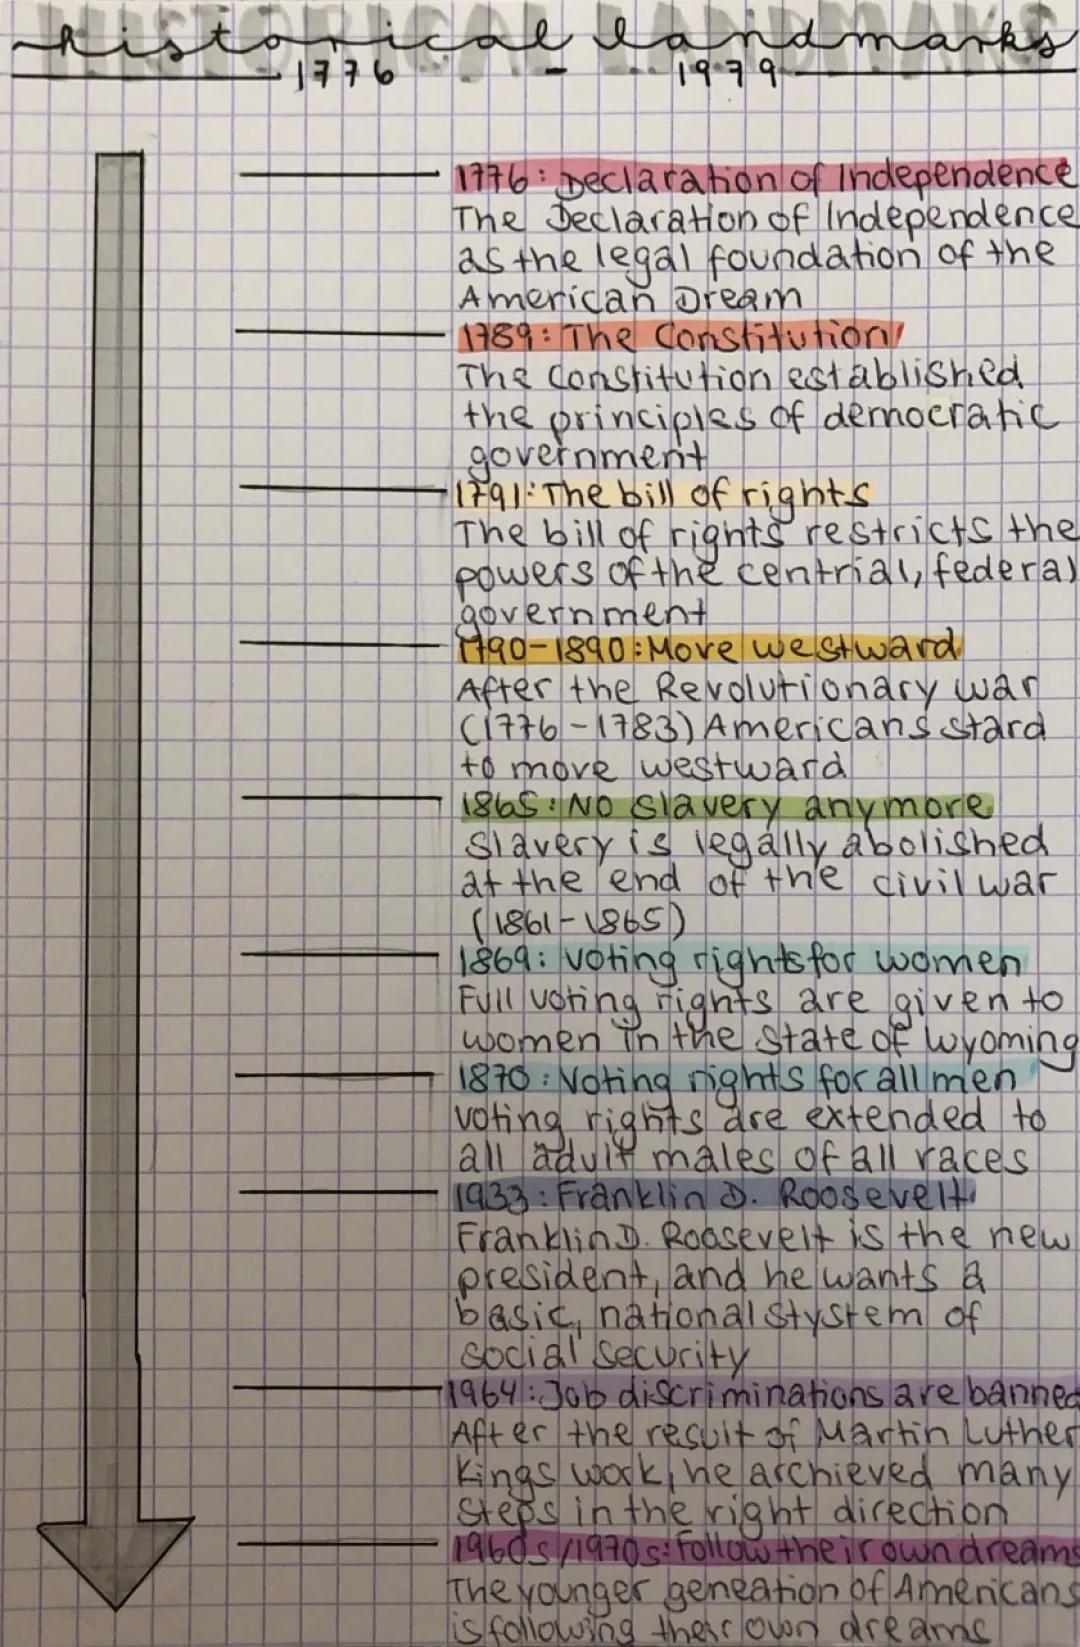 HISTORICAL LANDMARKS
historical landmarks
1776 - 1979
1776: Declaration of Independence
The Declaration of Independence
as the legal foundation of the
American Dream
1789: The Constitution
The Constitution established
the principles of democratic
government
1791: The bill of rights
The bill of rights restricts the
powers of the centrial, federal
government
1790-1890: Move westward
After the Revolutionary war
(1776-1783) Americans stard
to move westward
1865: No slavery anymore
Slavery is legally abolished
at the end of the civil war
(1861-1865)
1869: Voting rights for women
Full voting rights are given to
women in the state of Wyoming
1870: Voting rights for all men
voting rights are extended to
all adult males of all races
1933: Franklin D. Roosevelt
Franklin D. Roosevelt is the new
president, and he wants a
basic, national stystem of
social security
1964: Job discriminations are banned
After the result of Martin Luther
Kings work, he archieved many
steps in the right direction
1960s/1970s: Follow their own dreams
The younger geneation of Americans
is following their own dreams